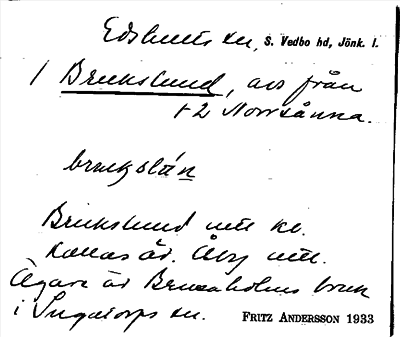 Edshults sn, S. Vedbo hd, Jönk. l.
1 Brukslund, avs från
1-2 Norrsånna.
brukslùn
Brukslund utt. kl.
Kallas äv. Åby utt.
Ägare är Bruzaholms bruk
i Ingatorps sn. FRITZ ANDERSSON 1933